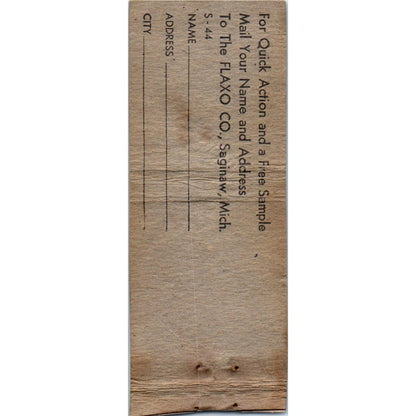 For Quick Action and a Free Sample
Mail Your Name and Address
To The FLAXO CO., Saginaw, Mich.
S-44
NAME
ADDRESS
CITY